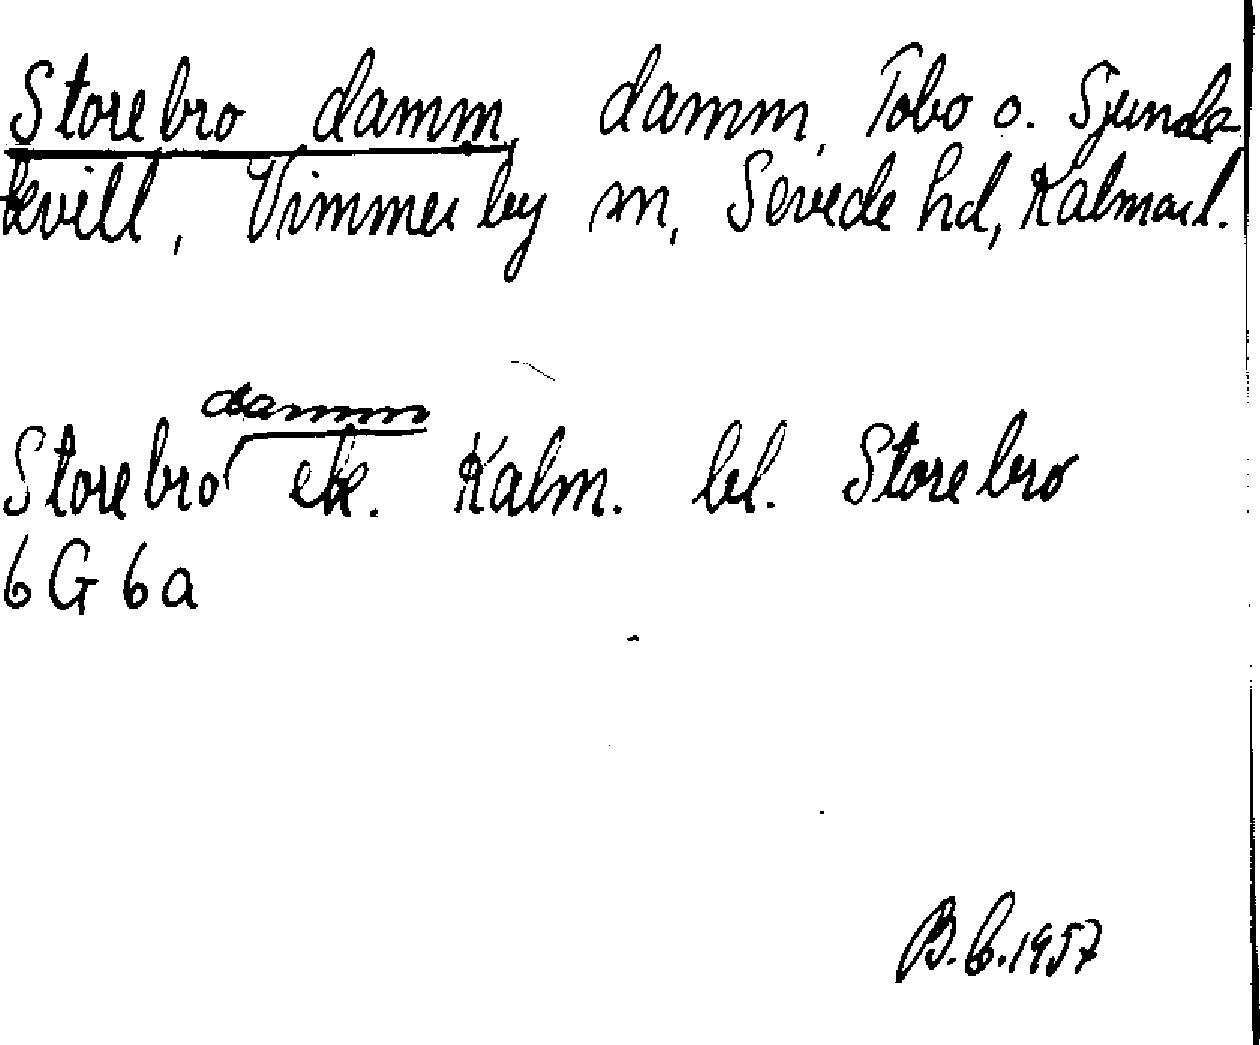 Storebro damm, damm, Tobo o. Sjunda-
kvill, Vimmerby sn, Sevede hd, Kalmar l.
damm
Storebro ek. Kalm. bl. Storebro
6G6a
B.b.1957